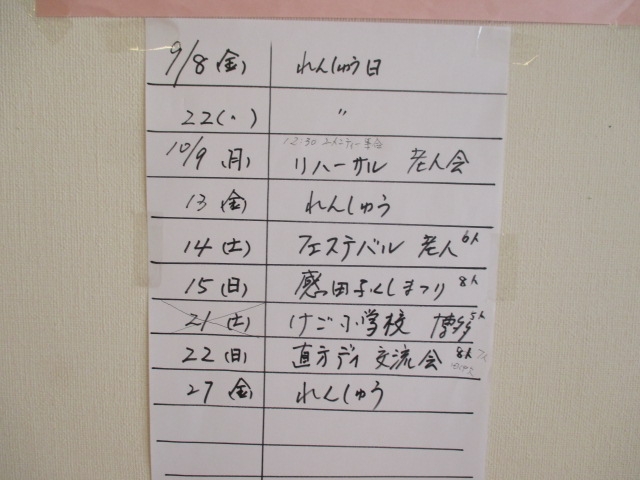 9/8(金) れんしゅう日
22(〃) 〃
12:30
10/9(月) リハーサル 老人会
13 金 れんしゅう
14(土) フェステバル 老人 6人
15(日) 感田ふくしまつり 8人
21(土) けご小学校 博多 5人
22(日) 直方デイ 交流会 8人
27 金 れんしゅう